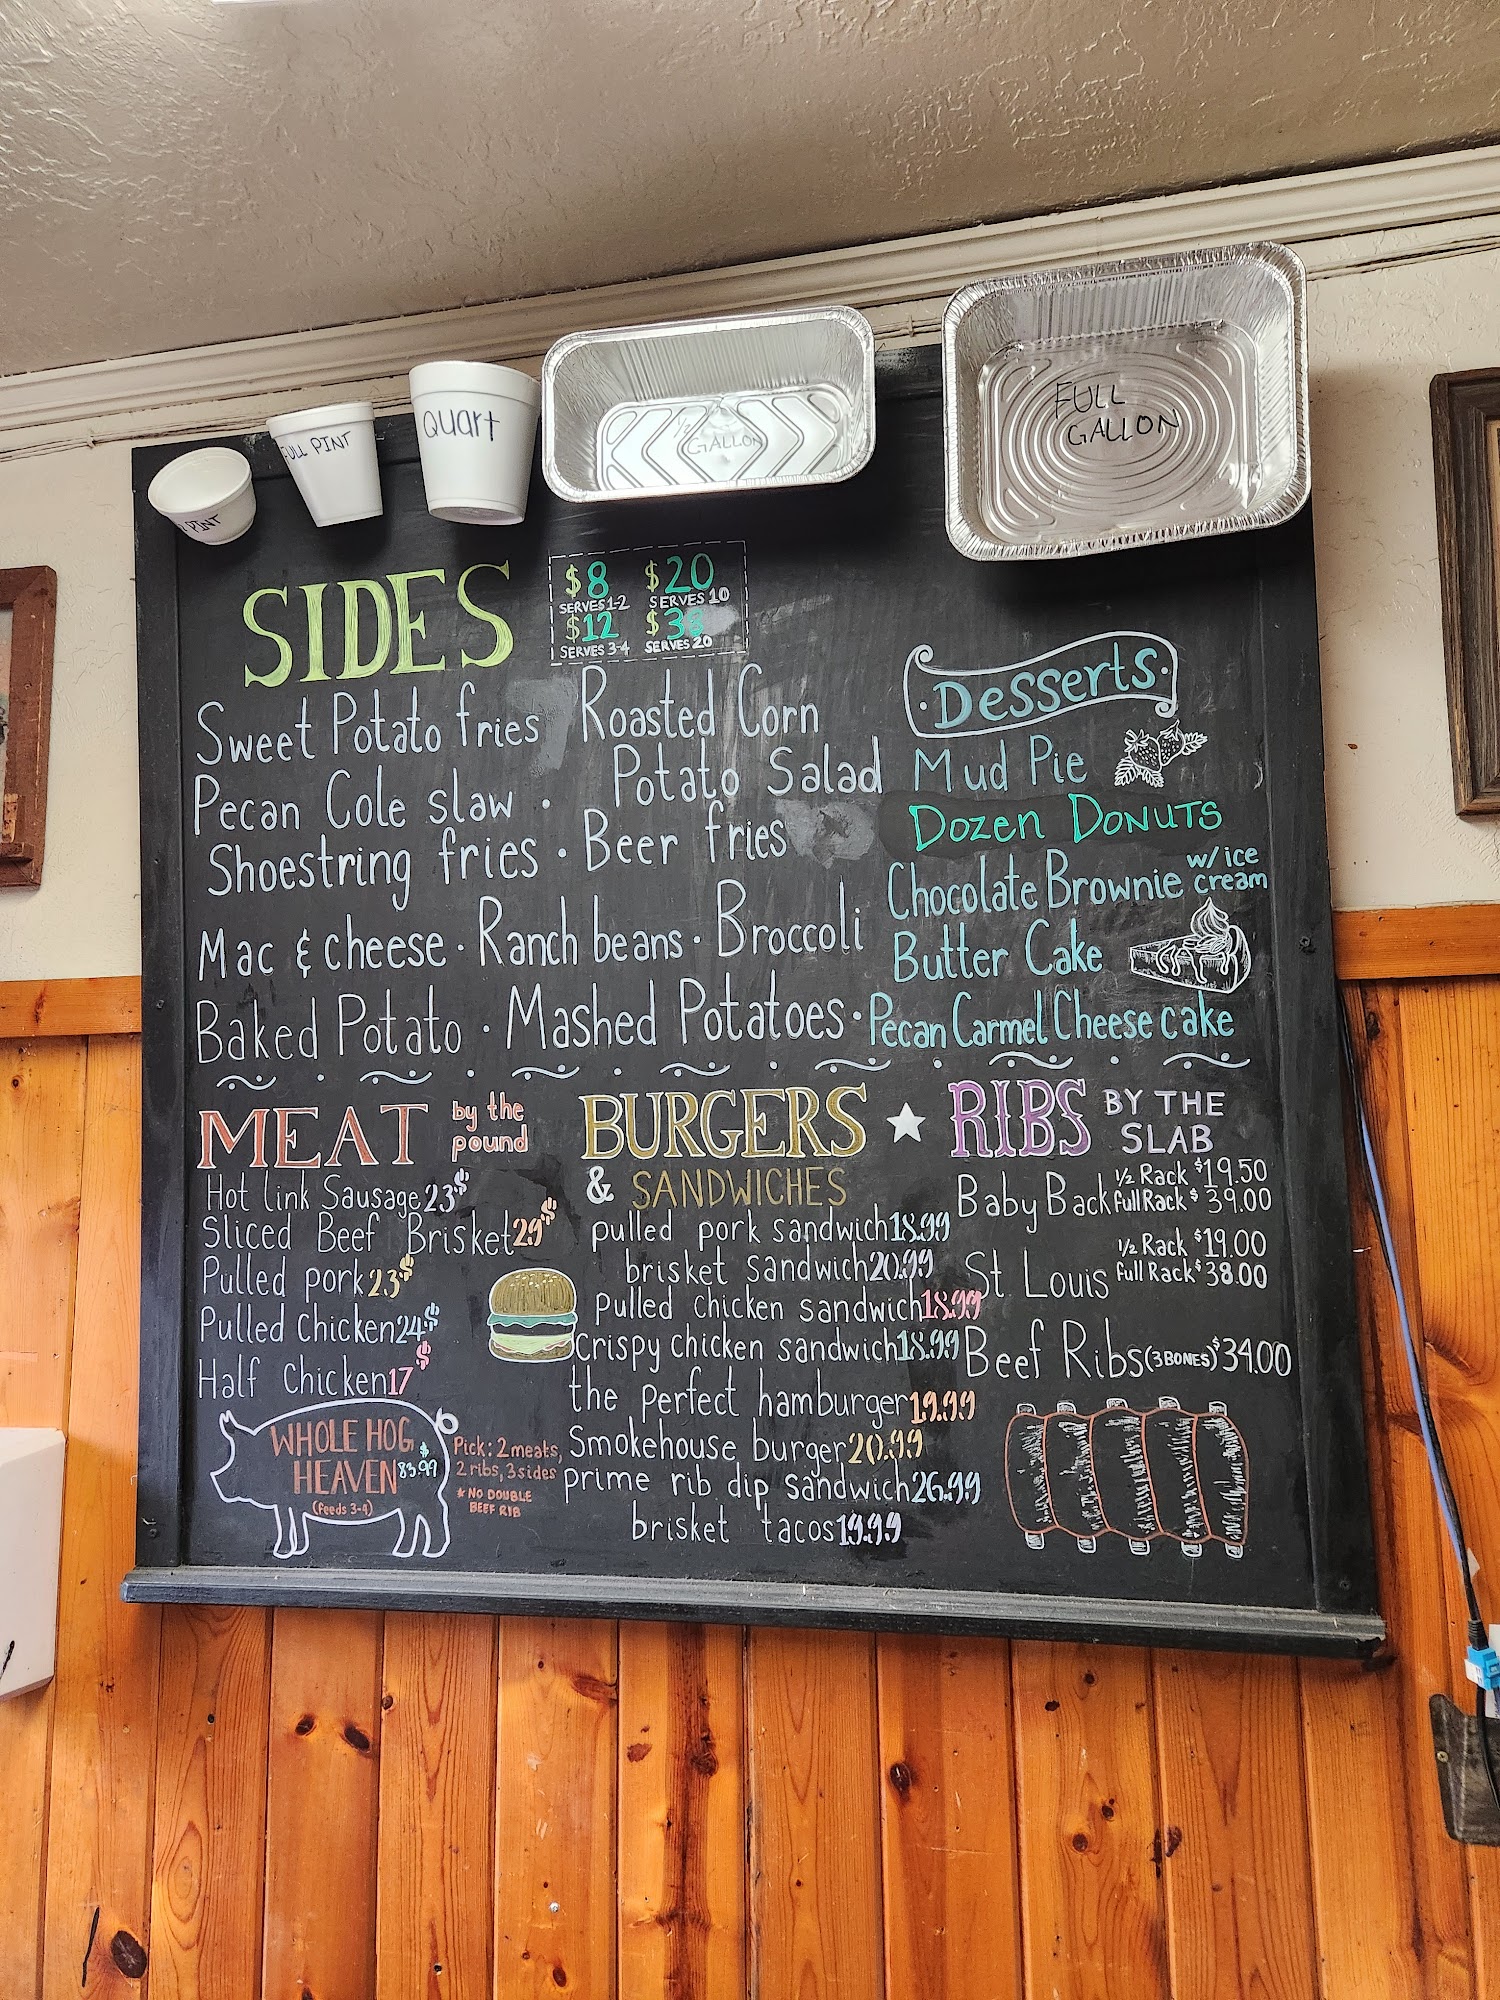 PINT
FULL PINT
Quart
½ GALLON
FULL
GALLON
SIDES
$8 $20
SERVES 1-2 SERVES 10
$12 $38
SERVES 3-4 SERVES 20
Sweet Potato fries Roasted Corn
Pecan Cole slaw · Potato Salad
Shoestring fries · Beer fries
Mac & cheese · Ranch beans · Broccoli
Baked Potato · Mashed Potatoes ·
Desserts
Mud Pie
Dozen Donuts
Chocolate Brownie w/ ice cream
Butter Cake
Pecan Carmel Cheese cake
MEAT by the pound
Hot link Sausage 23$
Sliced Beef Brisket 29$
Pulled pork 23$
Pulled Chicken 24$
Half Chicken 17$
WHOLE HOG
HEAVEN $83.99
(feeds 3-4)
Pick: 2 meats,
2 ribs, 3 sides
* NO DOUBLE
BEEF RIB
BURGERS
& SANDWICHES
pulled pork sandwich 18.99
brisket sandwich 20.99
pulled chicken sandwich 18.99
Crispy chicken sandwich 18.99
the perfect hamburger 19.99
Smokehouse burger 20.99
prime rib dip sandwich 26.99
brisket tacos 19.99
RIBS BY THE
SLAB
Baby Back ½ Rack $19.50
full Rack $39.00
St Louis ½ Rack $19.00
full Rack $38.00
Beef Ribs (3 BONES) $34.00